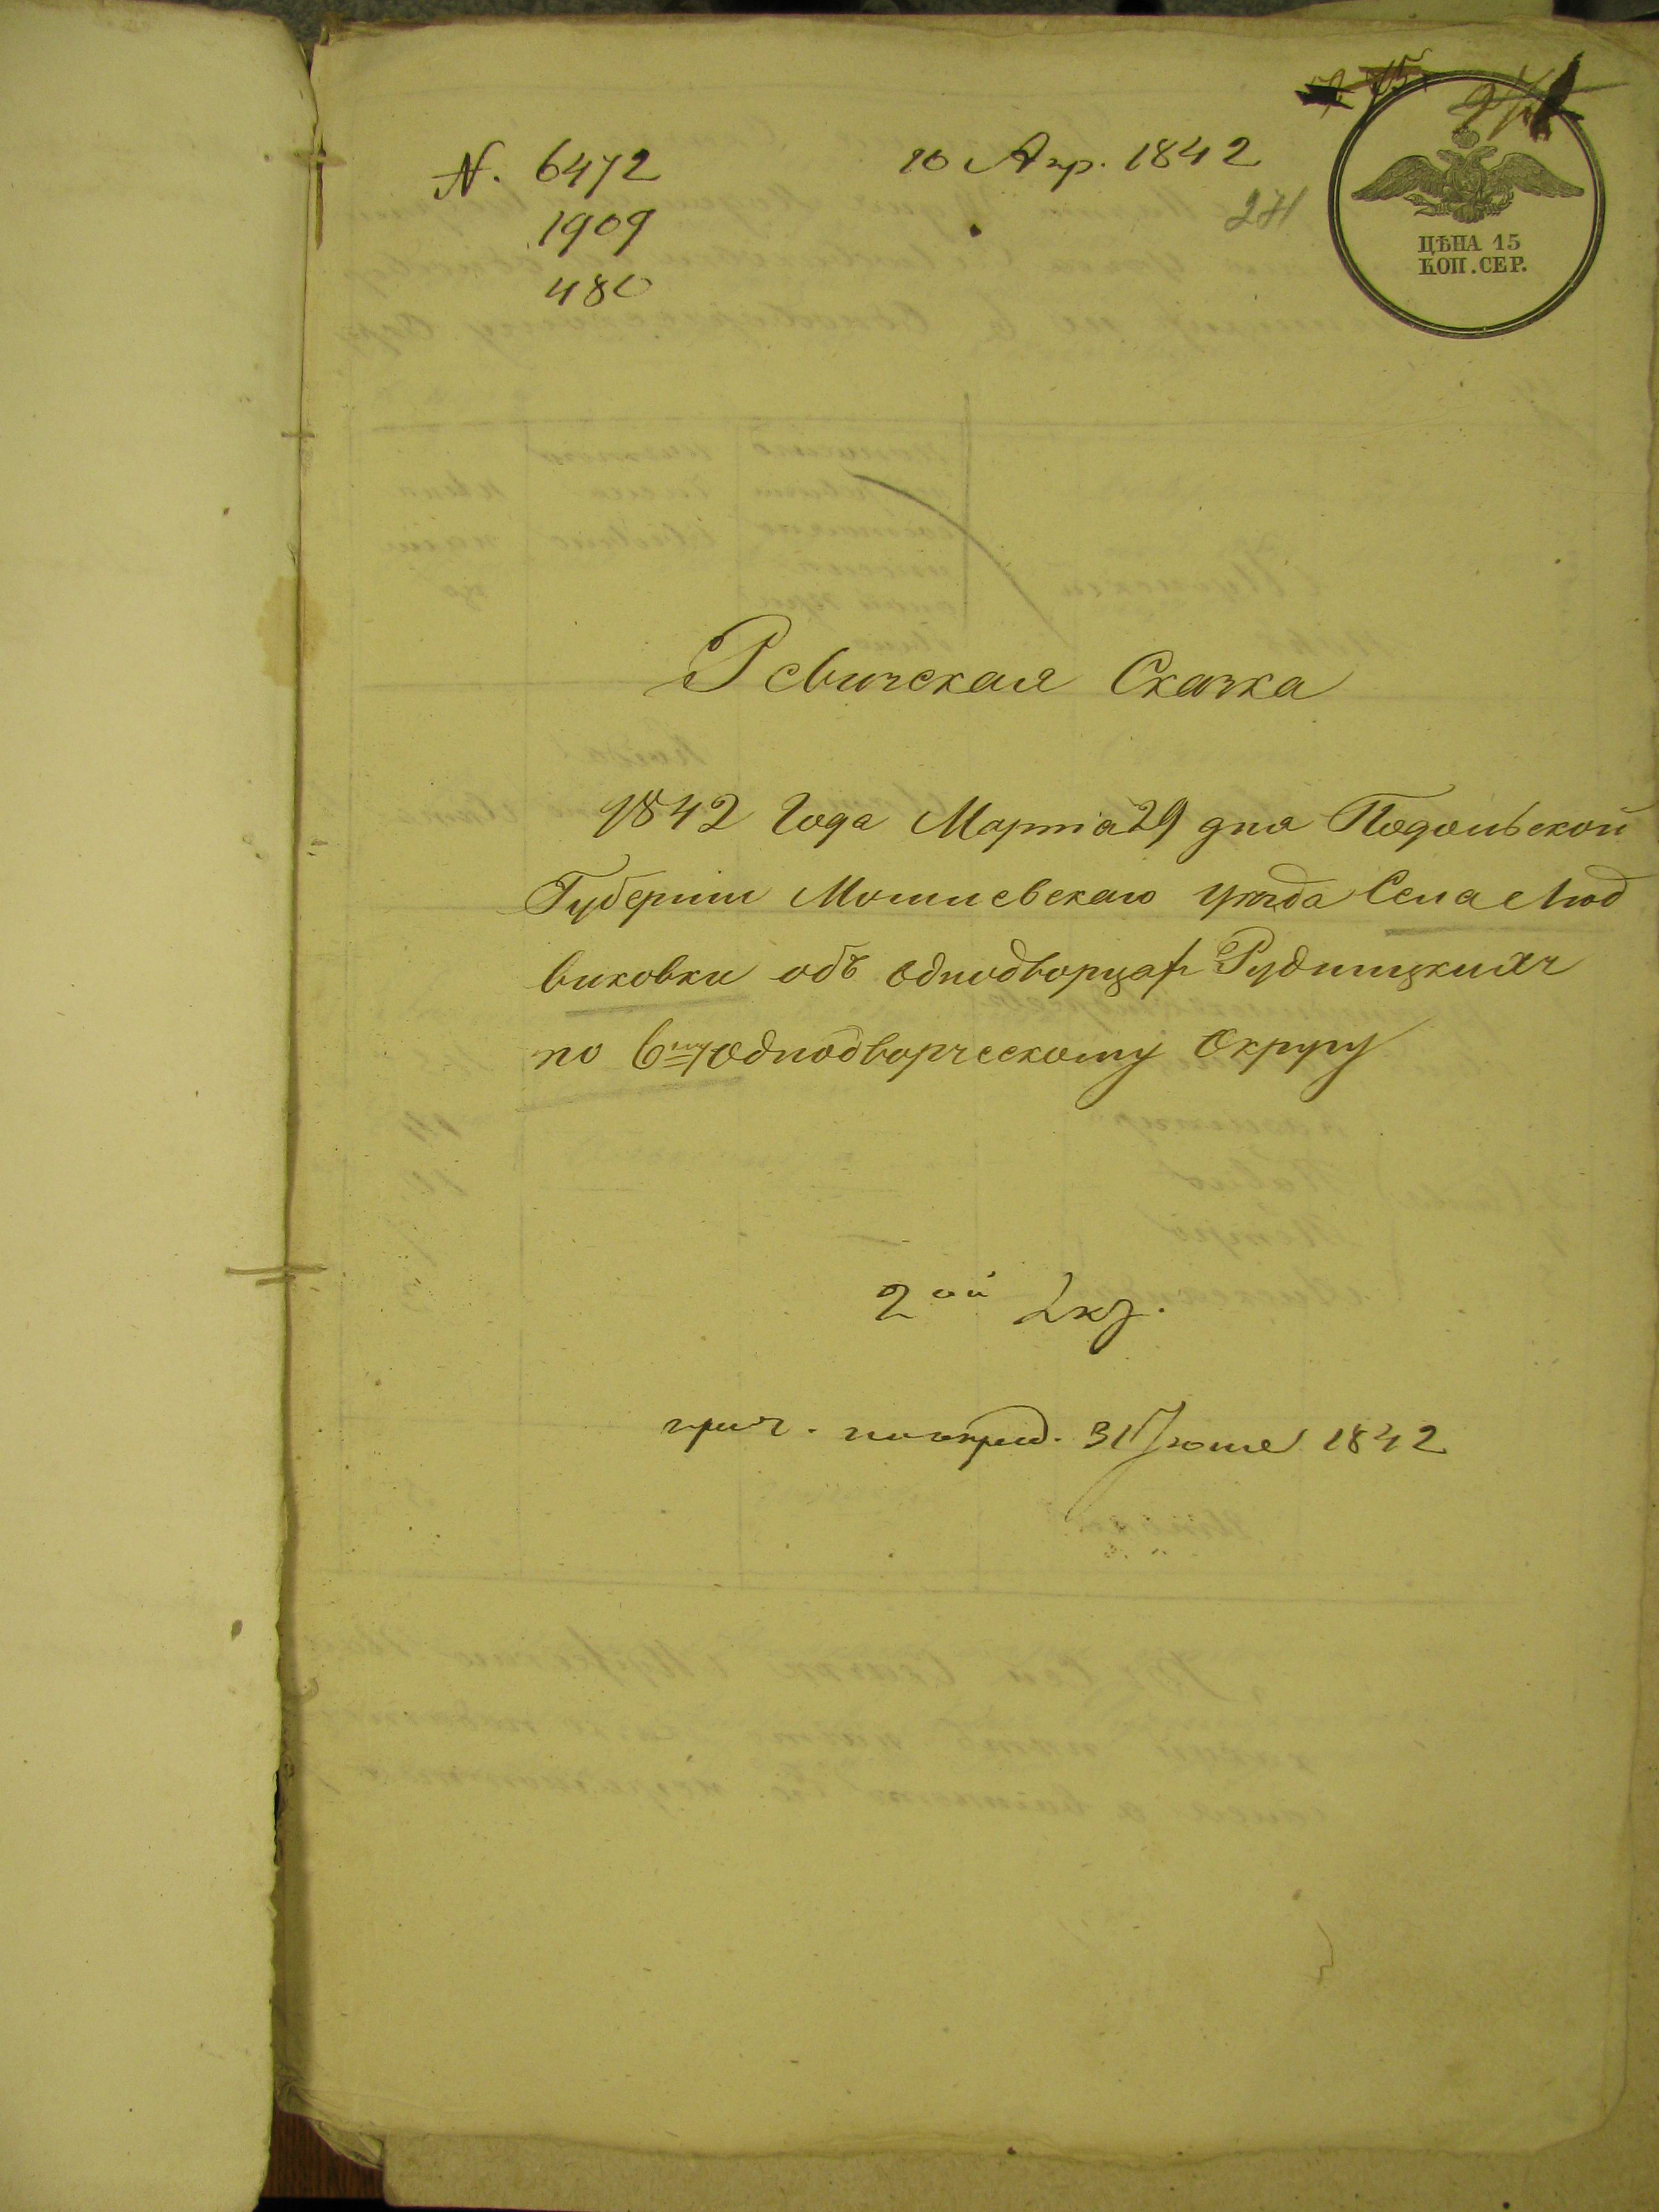 N. 6472
1909
480
10 Апр. 1842
ЦѢНА 15
КОП. СЕР.
Ревижская Сказка
1842 Года Марта 29 дня Подольской
Губернии Могилевскаго уезда Села Люд
виковки объ однодворцах Рудницкихъ
по 6му Однодворческому Округу
2ой Экз.
31 Июля 1842